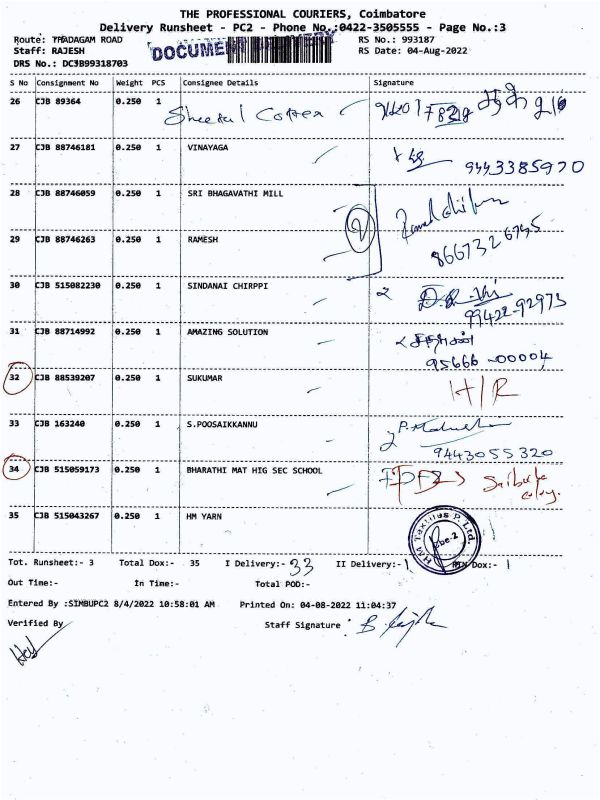 THE PROFESSIONAL COURIERS, Coimbatore
Delivery Runsheet - PC2 - Phone No.:0422-3505555 - Page No.:3
Route: THADAGAM ROAD RS No.: 993187
Staff: RAJESH DOCUMENT DELIVERY RS Date: 04-Aug-2022
DRS No.: DC3B99318703
S No Consignment No Weight PCS Consignee Details Signature
26 CJB 89364 0.250 1
27 CJB 88746181 0.250 1 VINAYAGA 9443385970
28 CJB 88746059 0.250 1 SRI BHAGAVATHI MILL
29 CJB 88746263 0.250 1 RAMESH 8667326745
30 CJB 515082230 0.250 1 SINDANAI CHIRPPI 99422-92973
31 CJB 88714992 0.250 1 AMAZING SOLUTION 95666-00004
32 CJB 88539207 0.250 1 SUKUMAR H/R
33 CJB 163240 0.250 1 S.POOSAIKKANNU 9443055320
34 CJB 515059173 0.250 1 BHARATHI MAT HIG SEC SCHOOL
35 CJB 515043267 0.250 1 HM YARN HM Textiles P. Ltd. Cbe-2
Tot. Runsheet:- 3 Total Dox:- 35 I Delivery:- 33 II Delivery:- 1 Dox:- 1
Out Time:- In Time:- Total POD:-
Entered By :SIMBUPC2 8/4/2022 10:58:01 AM Printed On: 04-08-2022 11:04:37
Verified By Staff Signature